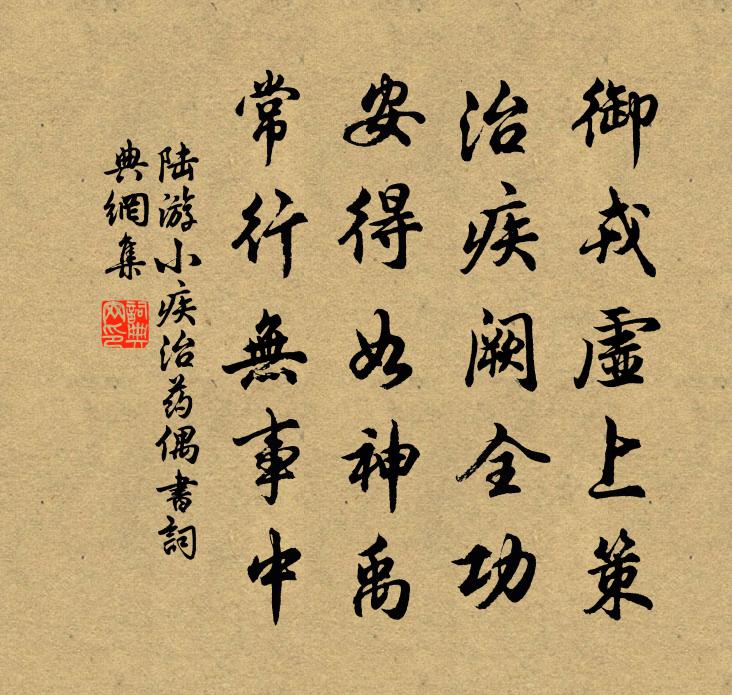 御戎虛上策
治疾阙全功
安得如神禹
常行無事中
陆游小疾治药偶書詞
典網集
詞典網印